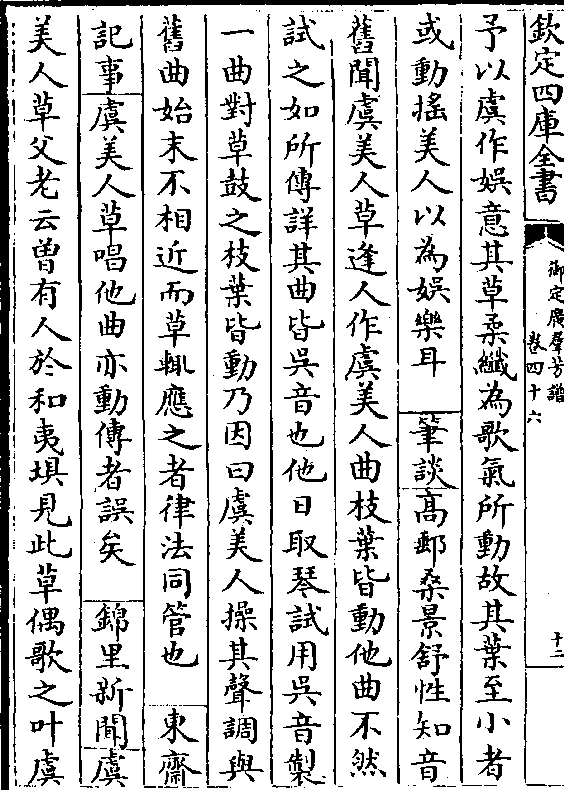 欽定四庫全書
御定廣羣芳譜
卷四十六
十二
予以虞作娱意其草柔纖為歌氣所動故其葉至小者
或動搖美人以為娱樂耳 筆談高郵桑景舒性知音
舊聞虞美人草逢人作虞美人曲枝葉皆動他曲不然
試之如所傳詳其曲皆吳音也他日取琴試用吳音製
一曲對草鼓之枝葉皆動乃因曰虞美人操其聲調與
舊曲始末不相近而草輒應之者律法同管也 東齋
記事虞美人草唱他曲亦動傳者誤矣 錦里新聞虞
美人草父老云曽有人於和夷埧見此草偶歌之叶虞